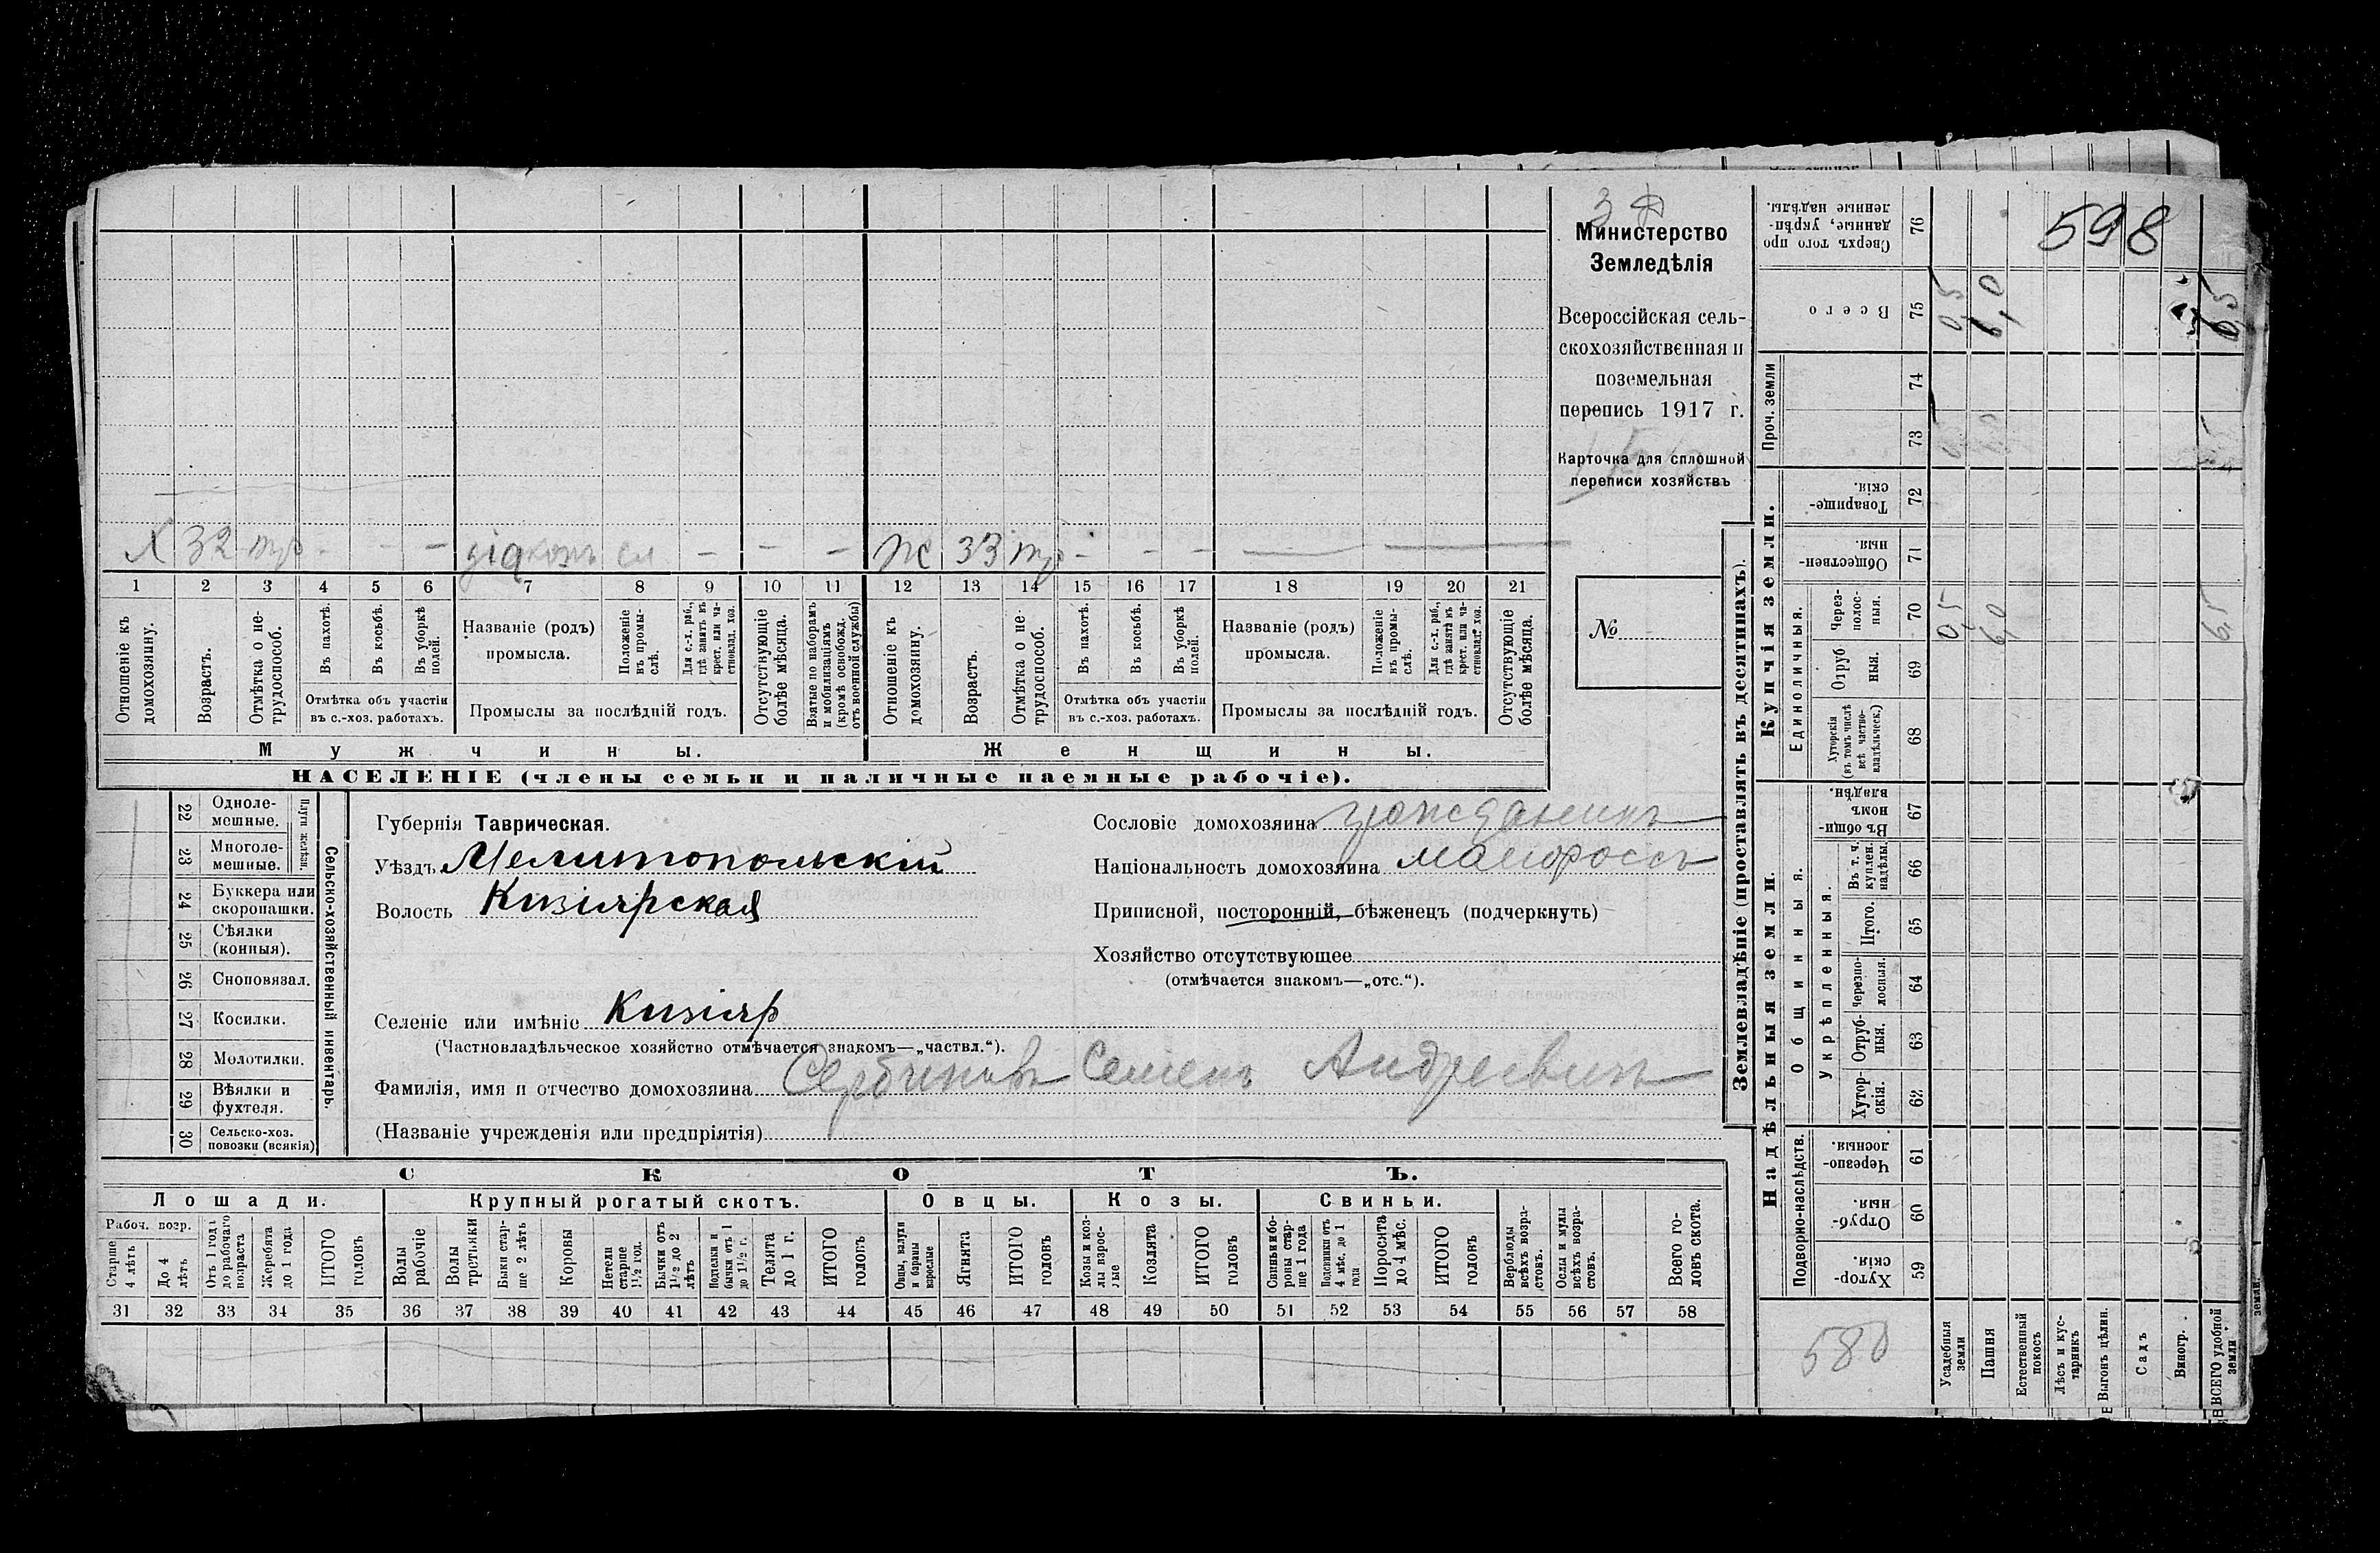 3
598
Министерство
Земледѣлія
Всероссійская сель-
скохозяйственная и
поземельная
перепись 1917 г.
Карточка для сплошной
переписи хозяйствъ
№
Х 32 тр - - - діаконъ сл - - - Ж 33 тр - - -
1 2 3 4 5 6 7 8 9 10 11 12 13 14 15 16 17 18 19 20 21
Отношеніе къ домохозяину.
Возрастъ.
Отмѣтка о не-трудоспособ.
Въ пахотѣ.
Въ косьбѣ.
Въ уборкѣ полей.
Отмѣтка объ участіи въ с.-хоз. работахъ.
Названіе (родъ) промысла.
Положеніе въ промы-слѣ.
Для с.-х. раб., гдѣ занятъ въ крест. или ча-стновлад. хоз.
Промыслы за послѣдній годъ.
Отсутствующіе болѣе мѣсяца.
Взятые по наборамъ и мобилизаціямъ (кромѣ освобожд. отъ военной службы)
Отношеніе къ домохозяину.
Возрастъ.
Отмѣтка о не-трудоспособ.
Въ пахотѣ.
Въ косьбѣ.
Въ уборкѣ полей.
Отмѣтка объ участіи въ с.-хоз. работахъ.
Названіе (родъ) промысла.
Положеніе въ промы-слѣ.
Для с.-х. раб., гдѣ занята въ крест. или ча-стновлад. хоз.
Промыслы за послѣдній годъ.
Отсутствующіе болѣе мѣсяца.
Мужчины. Женщины.
НАСЕЛЕНІЕ (члены семьи и наличные наемные рабочіе).
Сельско-хозяйственный инвентарь.
Плуги желѣзн.
22 Одноле-мешные.
23 Многоле-мешные.
24 Буккера или скоропашки.
25 Сѣялки (конныя).
26 Сноповязал.
27 Косилки.
28 Молотилки.
29 Вѣялки и фухтеля.
30 Сельско-хоз. повозки (всякія)
Губернія Таврическая.
Уѣздъ Мелитопольскій
Волость Кизіярская
Сословіе домохозяина гражданинъ
Національность домохозяина малороссъ
Приписной, посторонній, бѣженецъ (подчеркнуть)
Хозяйство отсутствующее
(отмѣчается знакомъ—„отс.“).
Селеніе или имѣніе Кизіяр
(Частновладѣльческое хозяйство отмѣчается знакомъ—„частвл.“).
Фамилія, имя и отчество домохозяина Сербиновъ Семенъ Андреевичъ
(Названіе учрежденія или предпріятія)
СКОТЪ.
Лошади. Крупный рогатый скотъ. Овцы. Козы. Свиньи.
Рабоч. возр.
Старше 4 лѣтъ
До 4 лѣтъ
Отъ 1 года до рабочаго возраста
Жеребята до 1 года
ИТОГО головъ
Волы рабочіе
Волы третьяки
Быки стар-ше 2 лѣтъ
Коровы
Нетели старше 1½ год.
Бычки отъ 1½ до 2 лѣтъ
Подтелки и бычки отъ 1 до 1½ г.
Телята до 1 г.
ИТОГО головъ
Овцы, валухи и бараны взрослые
Ягнята
ИТОГО головъ
Козы и коз-лы взрос-лые
Козлята
ИТОГО головъ
Свиньи и бо-ровы стар-ше 1 года
Подсвинки отъ 4 мѣс. до 1 года
Поросята до 4 мѣс.
ИТОГО головъ
Верблюды всѣхъ возра-стовъ.
Ослы и мулы всѣхъ возра-стовъ.
Всего го-ловъ скота.
31 32 33 34 35 36 37 38 39 40 41 42 43 44 45 46 47 48 49 50 51 52 53 54 55 56 57 58
Землевладѣніе (проставлять въ десятинахъ).
Купчія земли.
Надѣльныя земли.
Проч. земли
Единоличныя.
Общинныя.
Укрѣпленныя.
Подворно-наслѣдств.
Сверхъ того про данные, укрѣп-ленные надѣлы. 76
Всего 75 0,5 6,0 6,5
74
73 0,5 6,0
Товарище-скія. 72
Обществен-ныя. 71
Через-полос-ныя. 70 0,5 6,0 6,5
Отруб ныя. 69
Хуторскія (въ томъ числѣ всѣ частно-владѣльческ.) 68
Въ общи-номъ владѣн. 67
Въ т. ч. куплен. надѣлы. 66
Итого. 65
Черезпо-лосныя. 64
Отруб-ныя. 63
Хутор-скія. 62
Черезпо-лосныя. 61
Отруб-ныя. 60
Хутор-скія. 59
580
Усадебныя земли
Пашня
Естественный покосъ
Лѣсъ и кус-тарникъ
Выгонъ цѣлин.
Садъ
Виногр.
ВСЕГО удобной земли